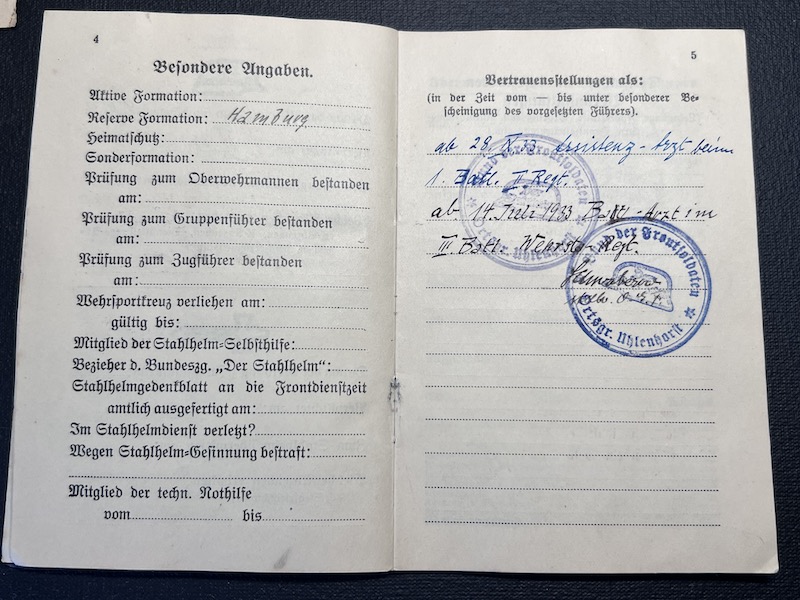 4
Besondere Angaben.
Aktive Formation:
Reserve Formation: Hamburg
Heimatschutz:
Sonderformation:
Prüfung zum Oberwehrmannen bestanden
am:
Prüfung zum Gruppenführer bestanden
am:
Prüfung zum Zugführer bestanden
am:
Wehrsportkreuz verliehen am:
gültig bis:
Mitglied der Stahlhelm-Selbsthilfe:
Bezieher d. Bundeszg. „Der Stahlhelm“:
Stahlhelmgedenkblatt an die Frontdienstzeit
amtlich ausgefertigt am:
Im Stahlhelmdienst verletzt?
Wegen Stahlhelm-Gesinnung bestraft:
Mitglied der techn. Nothilfe
vom bis
5
Vertrauensstellungen als:
(in der Zeit vom — bis unter besonderer Be-
scheinigung des vorgesetzten Führers).
ab 28. 33 Assistenz-Arzt beim
1. Batl. II Regt.
ab 14 Juli 1933 Batl-Arzt im
III Batl. Regt.
Bund der Frontsoldaten
Ortsgr. Uhlenhorst
der Frontsoldaten
Ortsgr. Uhlenhorst